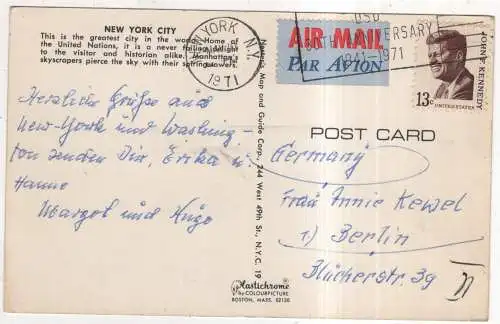 NEW YORK CITY
This is the greatest city in the world. Home of
the United Nations, it is a never failing delight
to the visitor and historian alike. Manhattan's
skyscrapers pierce the sky with their splendors.
Herzliche Grüße aus
New-York und Washing-
ton senden Dir, Erika u.
Hanne
Margot und Hugo
Nester's Map and Guide Corp., 244 West 49th St., N.Y.C. 19
Plastichrome
by COLOURPICTURE
BOSTON, MASS. 02130
NEW YORK, N.Y.
1971
AIR MAIL
PAR AVION
USO
30TH ANNIVERSARY
1941-1971
JOHN F. KENNEDY
13c
UNITED STATES
POST CARD
Germany
Frau Annie Kewel
1) Berlin
Blücherstr. 39